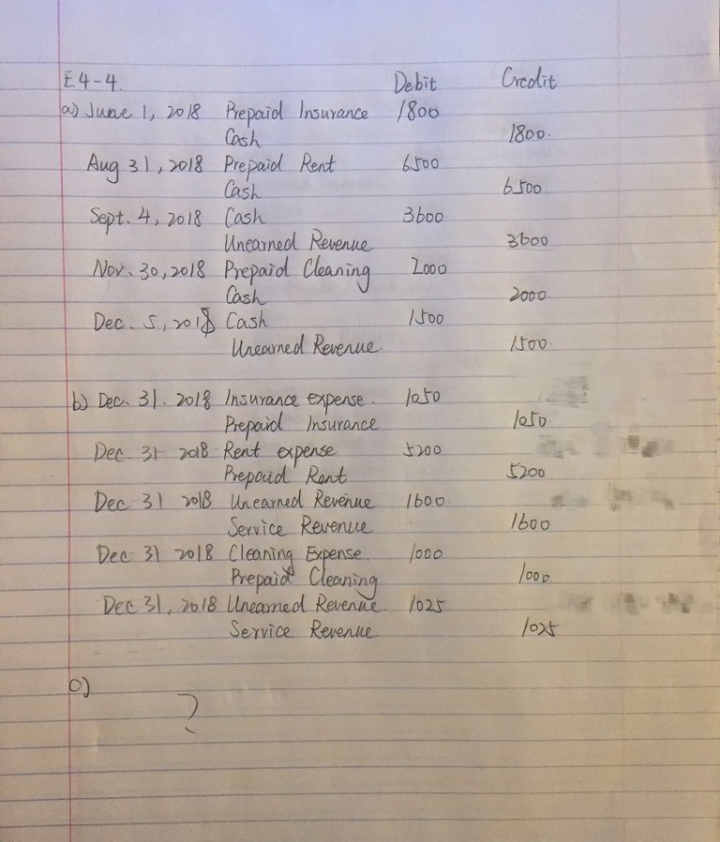 E4-4. Debit Credit
a) June 1, 2018 Prepaid Insurance 1800
Cash 1800.
Aug 31, 2018 Prepaid Rent 6500
Cash 6500.
Sept. 4, 2018 Cash 3600
Unearned Revenue 3600
Nov. 30, 2018 Prepaid Cleaning 2000
Cash 2000.
Dec. 5, 2018 Cash 1500
Unearned Revenue. 1500.
b) Dec. 31. 2018 Insurance expense. 1050
Prepaid Insurance 1050.
Dec. 31 2018 Rent expense 5200
Prepaid Rent 5200
Dec 31 2018 Unearned Revenue 1600.
Service Revenue 1600
Dec 31 2018 Cleaning Expense. 1000
Prepaid Cleaning 1000.
Dec 31, 2018 Unearned Revenue. 1025
Service Revenue 1025
c)
?